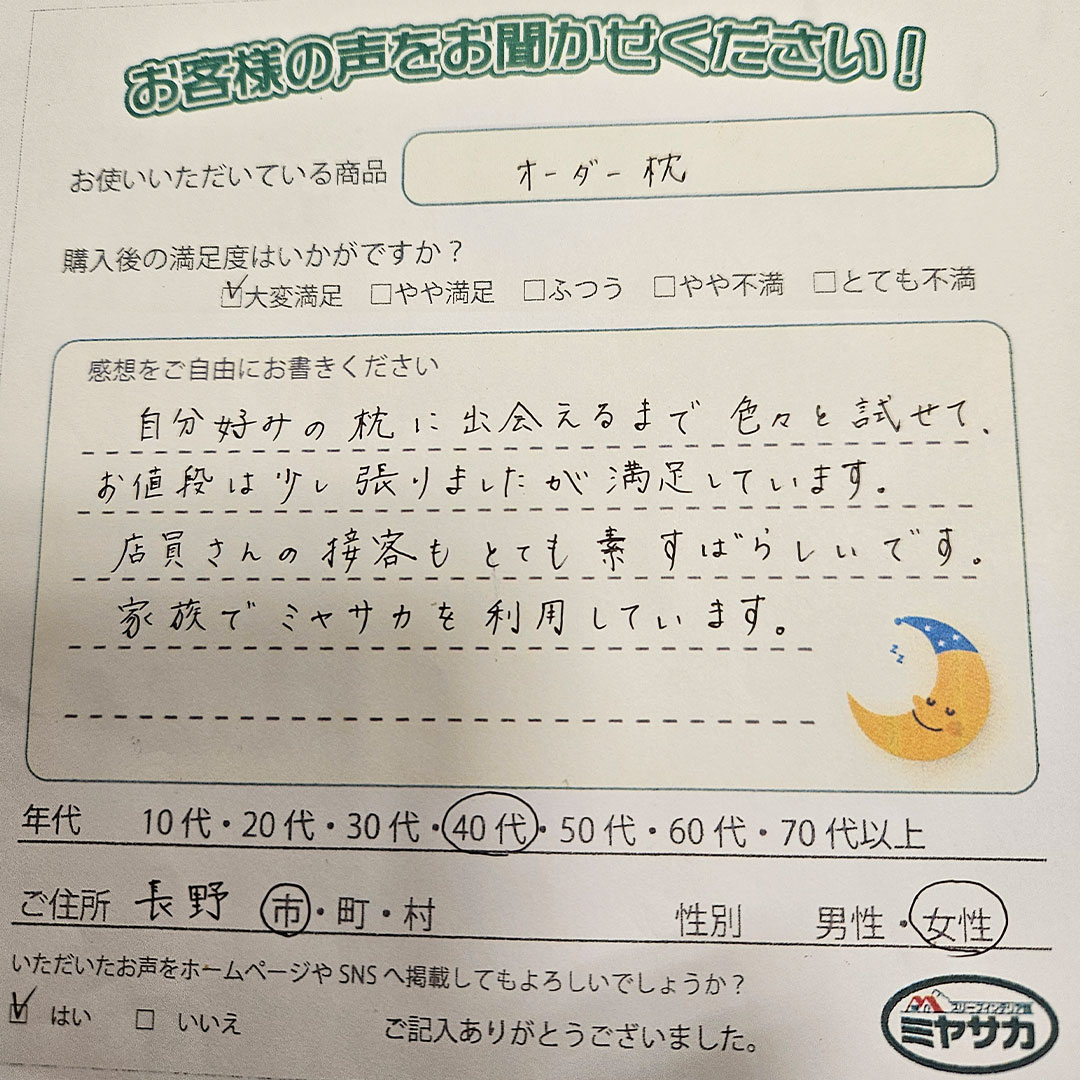 お客様の声をお聞かせください！
お使いいただいている商品 オーダー枕
購入後の満足度はいかがですか？
☑大変満足 □やや満足 □ふつう □やや不満 □とても不満
感想をご自由にお書きください
自分好みの枕に出会えるまで色々と試せて、
お値段は少し張りましたが満足しています。
店員さんの接客もとても素すばらしいです。
家族でミヤサカを利用しています。
zz
年代 10代・20代・30代・40代・50代・60代・70代以上
ご住所 長野 市・町・村 性別 男性・女性
いただいたお声をホームページやSNSへ掲載してもよろしいでしょうか？
☑ はい □ いいえ ご記入ありがとうございました。
スリープインテリア館
ミヤサカ